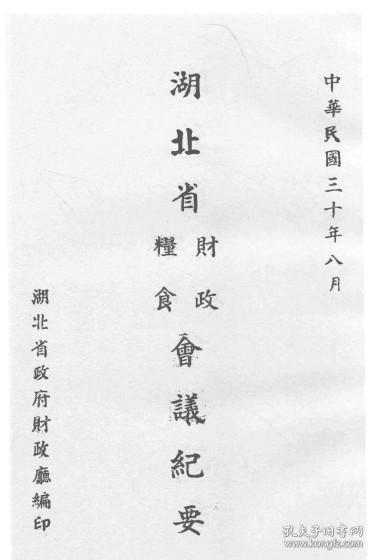 中華民國三十年八月
湖北省
財政
糧食
會議紀要
湖北省政府財政廳編印
孔夫子旧书网
www.kongfz.com